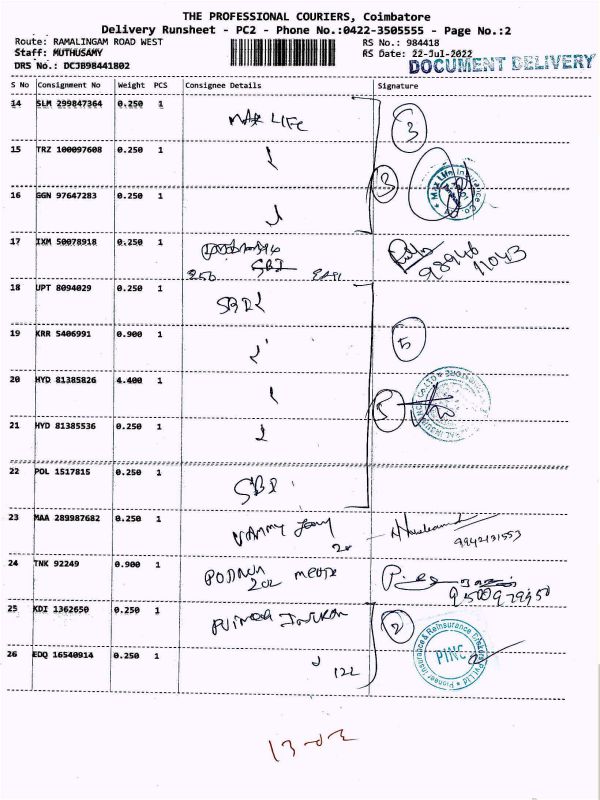 THE PROFESSIONAL COURIERS, Coimbatore
Delivery Runsheet - PC2 - Phone No.:0422-3505555 - Page No.:2
Route: RAMALINGAM ROAD WEST RS No.: 984418
Staff: MUTHUSAMY RS Date: 22-Jul-2022
DRS No.: DCJB98441802 DOCUMENT DELIVERY
S No Consignment No Weight PCS Consignee Details Signature
14 SLM 299847364 0.250 1 MAX LIFE 3
15 TRZ 100097608 0.250 1
16 GGN 97647283 0.250 1 3
Max Life Insurance Co.
17 IXM 50078918 0.250 1 SBI 98946
11043
18 UPT 8094029 0.250 1 SBI
19 KRR 5406991 0.900 1 5
20 HYD 81385826 4.400 1 5
21 HYD 81385536 0.250 1
22 POL 1517815 0.250 1 SBI
23 MAA 289987682 0.250 1 9942131553
24 TNK 92249 0.900 1
202
25 KDI 1362650 0.250 1 2
26 EDQ 16540914 0.250 1 122
Pioneer Insurance & Reinsurance Brokers Pvt Ltd
PINC